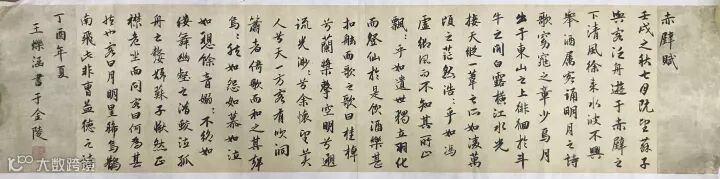 赤壁賦
壬戌之秋七月既望蘇子
與客泛舟遊于赤壁之
下清風徐來水波不興
舉酒属客誦明月之詩
歌窈窕之章少焉月
出于東山之上徘徊於斗
牛之間白露横江水光
接天縱一葦之所如凌萬
頃之茫然浩:乎如馮
虛御風而不知其所止
飄:乎如遺世獨立羽化
而登仙於是飲酒樂甚
扣舷而歌之歌曰桂棹
兮蘭槳擊空明兮遡
流光渺:兮余懷望美
人兮天一方客有吹洞
簫者倚歌而和之其聲
嗚:然如怨如慕如泣
如愬餘音嫋:不絶如
縷舞幽壑之潛蛟泣孤
舟之嫠婦蘇子愀然正
襟危坐而問客曰何為其
然也客曰月明星稀烏鵲
南飛此非曹孟德之詩
丁酉年夏
王爍涵書于金陵
大数跨境